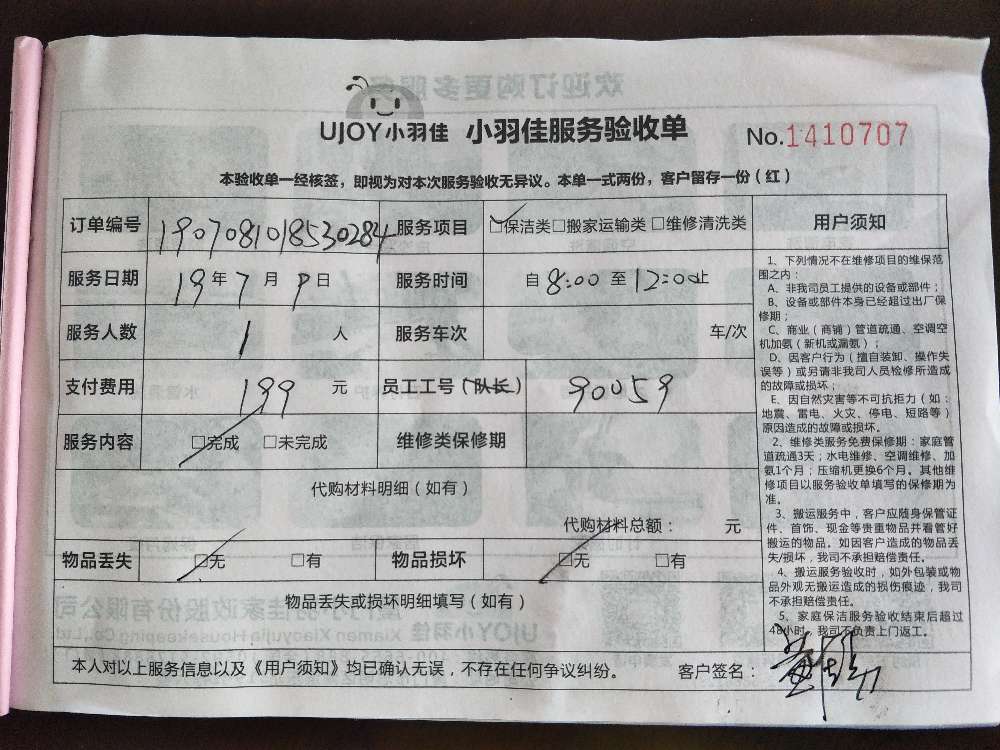 欢迎订购更多服务
UJOY小羽佳 小羽佳服务验收单 No.1410707
本验收单一经核签，即视为对本次服务验收无异议。本单一式两份，客户留存一份（红）
订单编号 1907081018530284 服务项目 保洁类□搬家运输类□维修清洗类 用户须知
服务日期 19年7月 日 服务时间 自8:00至12:00止
服务人数 1 人 服务车次 车/次
支付费用 199 元 员工工号（队长） 90059
服务内容 □完成 □未完成 维修类保修期
代购材料明细（如有）
代购材料总额： 元
物品丢失 □无 □有 物品损坏 □无 □有
物品丢失或损坏明细填写（如有）
1、下列情况不在维修项目的维保范
围之内：
A、非我司员工提供的设备或部件；
B、设备或部件本身已经超过出厂保
修期；
C、商业（商铺）管道疏通、空调空
机加氨（新机或漏氨）；
D、因客户行为（擅自装卸、操作失
误等）或另请非我司人员检修所造成
的故障或损坏；
E、因自然灾害等不可抗拒力（如：
地震、雷电、火灾、停电、短路等）
原因造成的故障或损坏。
2、维修类服务免费保修期：家庭管
道疏通3天；水电维修、空调维修、加
氨1个月；压缩机更换6个月。其他维
修项目以服务验收单填写的保修期为
准。
3、搬运服务中，客户应随身保管证
件、首饰、现金等贵重物品并看管好
搬运的物品。如因客户造成的物品丢
失/损坏，我司不承担赔偿责任。
4、搬运服务验收时，如外包装或物
品外观无搬运造成的损伤痕迹，我司
不承担赔偿责任。
5、家庭保洁服务验收结束后超过
48小时，我司不负责上门返工。
本人对以上服务信息以及《用户须知》均已确认无误，不存在任何争议纠纷。 客户签名：